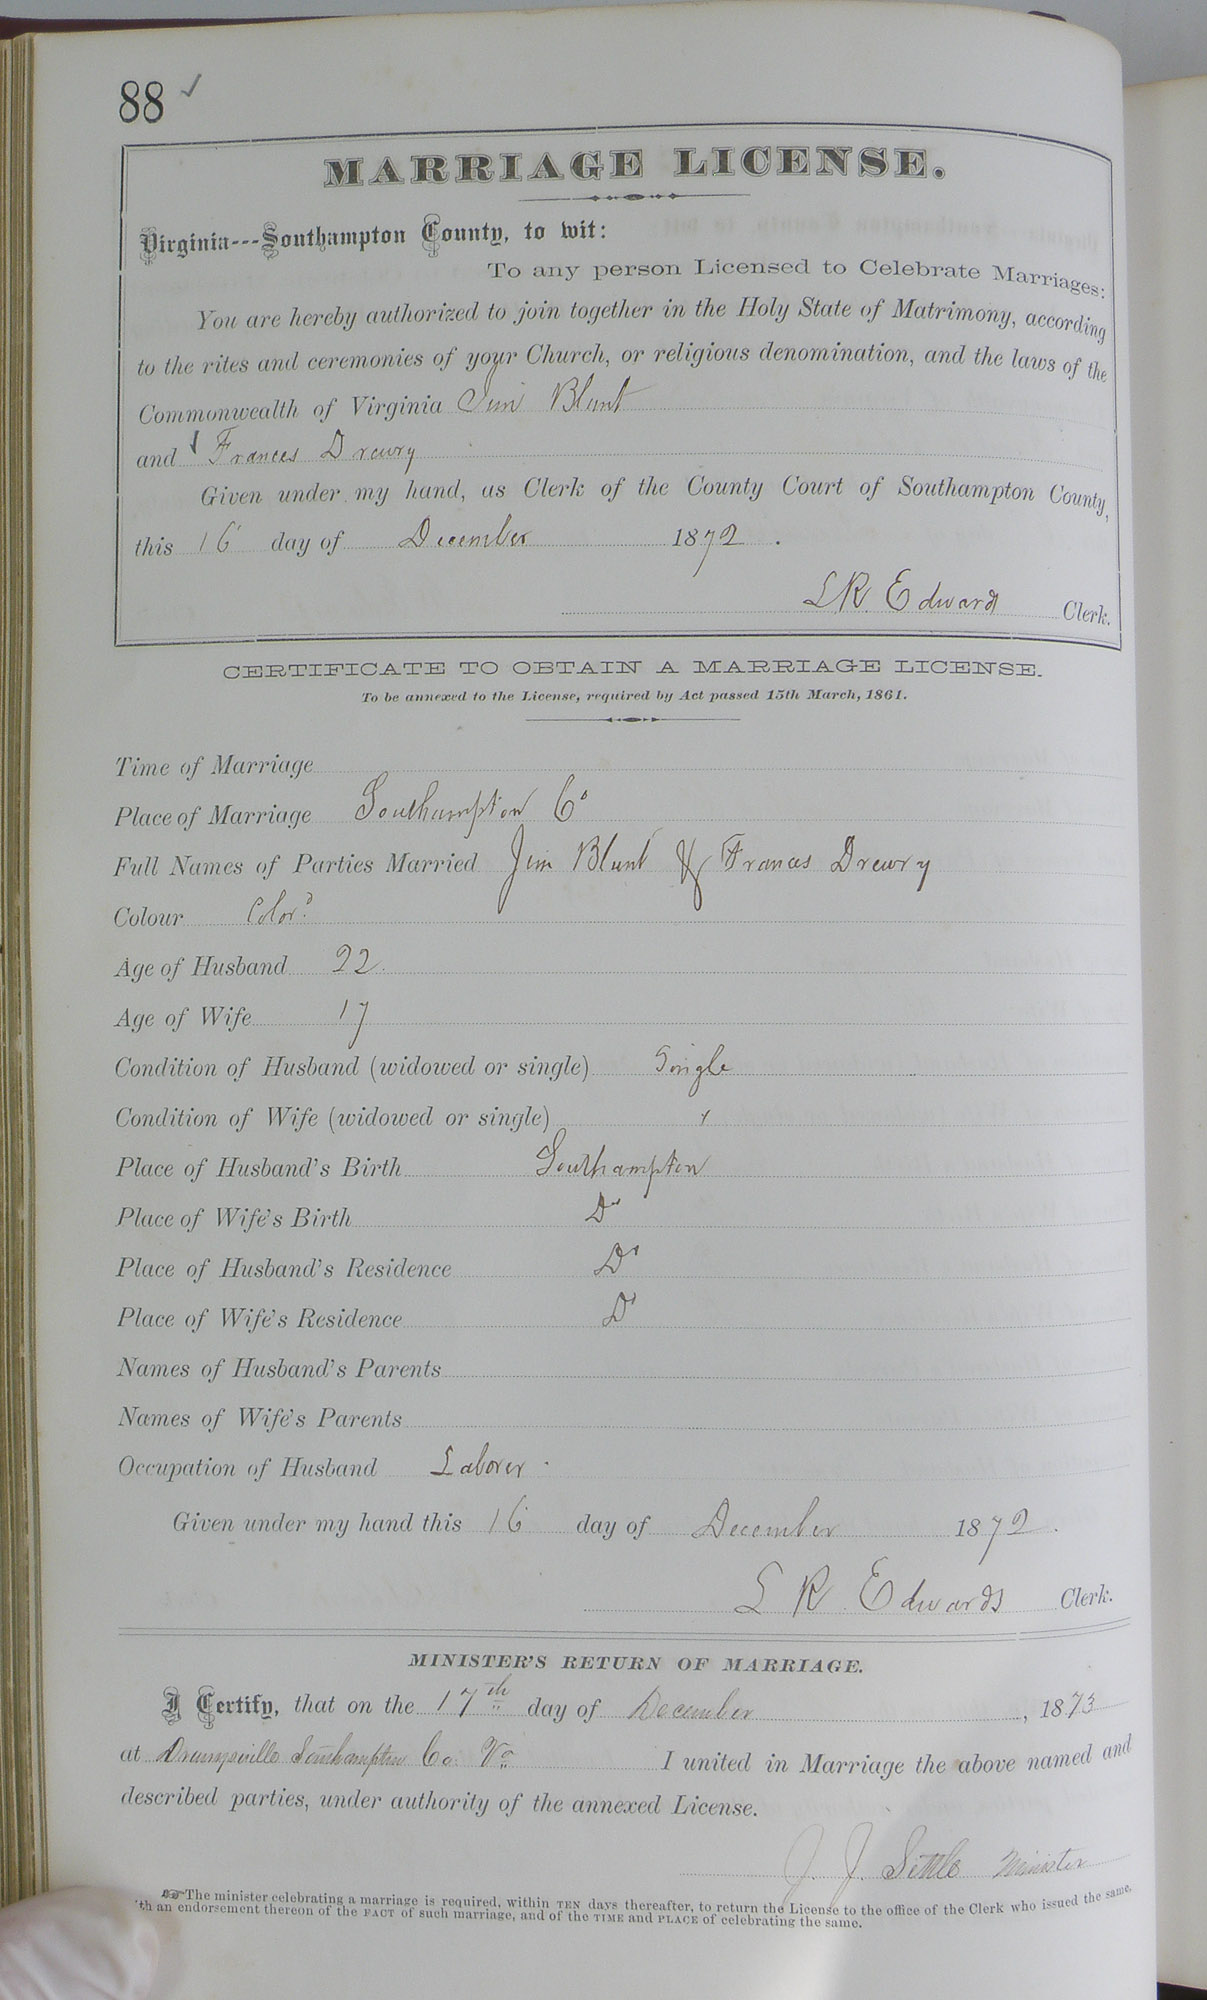 88 ✓
MARRIAGE LICENSE.
Virginia---Southampton County, to wit:
To any person Licensed to Celebrate Marriages:
You are hereby authorized to join together in the Holy State of Matrimony, according
to the rites and ceremonies of your Church, or religious denomination, and the laws of the
Commonwealth of Virginia Jim Blunt
and Frances Drewry
Given under my hand, as Clerk of the County Court of Southampton County,
this 16 day of December 1872.
L R Edwards Clerk.
CERTIFICATE TO OBTAIN A MARRIAGE LICENSE.
To be annexed to the License, required by Act passed 15th March, 1861.
Time of Marriage
Place of Marriage Southampton Co
Full Names of Parties Married Jim Blunt & Frances Drewry
Colour Colord
Age of Husband 22
Age of Wife 17
Condition of Husband (widowed or single) Single
Condition of Wife (widowed or single) "
Place of Husband's Birth Southampton
Place of Wife's Birth Do
Place of Husband's Residence Do
Place of Wife's Residence Do
Names of Husband's Parents
Names of Wife's Parents
Occupation of Husband Laborer
Given under my hand this 16 day of December 1872.
L R Edwards Clerk.
MINISTER'S RETURN OF MARRIAGE.
I Certify, that on the 17th day of December, 1873
at Drewrysville Southampton Co. Va I united in Marriage the above named and
described parties, under authority of the annexed License.
J. J. Settle Minister
☞ The minister celebrating a marriage is required, within TEN days thereafter, to return the License to the office of the Clerk who issued the same,
'th an endorsement thereon of the FACT of such marriage, and of the TIME and PLACE of celebrating the same.